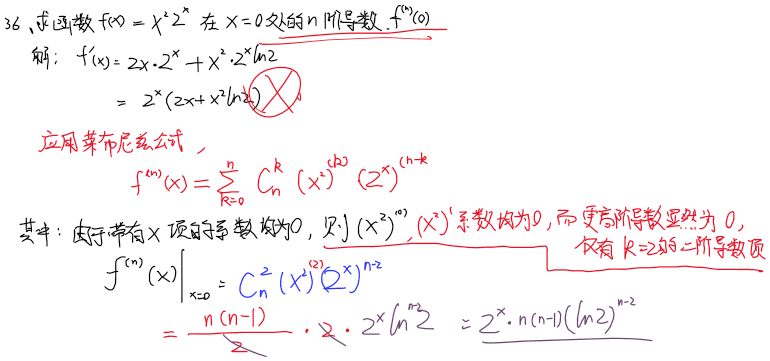 36、求函数 f(x) = x² 2ˣ 在 x=0 处的 n 阶导数 f⁽ⁿ⁾(0)
解: f'(x) = 2x·2ˣ + x²·2ˣ ln2
= 2ˣ(2x + x² ln2)
应用莱布尼兹公式,
f⁽ⁿ⁾(x) = ∑ₖ₌₀ⁿ Cₙᵏ (x²)⁽ᵏ⁾ (2ˣ)⁽ⁿ⁻ᵏ
其中: 由于带有 x 项的系数均为0, 则 (x²)⁽⁰⁾, (x²)' 系数均为0, 而更高阶导数显然为 0,
仅有 k=2的二阶导数项
f⁽ⁿ⁾(x)|ₓ₌₀ = Cₙ² (x²)⁽²⁾ (2ˣ)ⁿ⁻²
= n(n-1)/2 · 2 · 2ˣ lnⁿ⁻² 2 = 2ˣ · n(n-1)(ln2)ⁿ⁻²